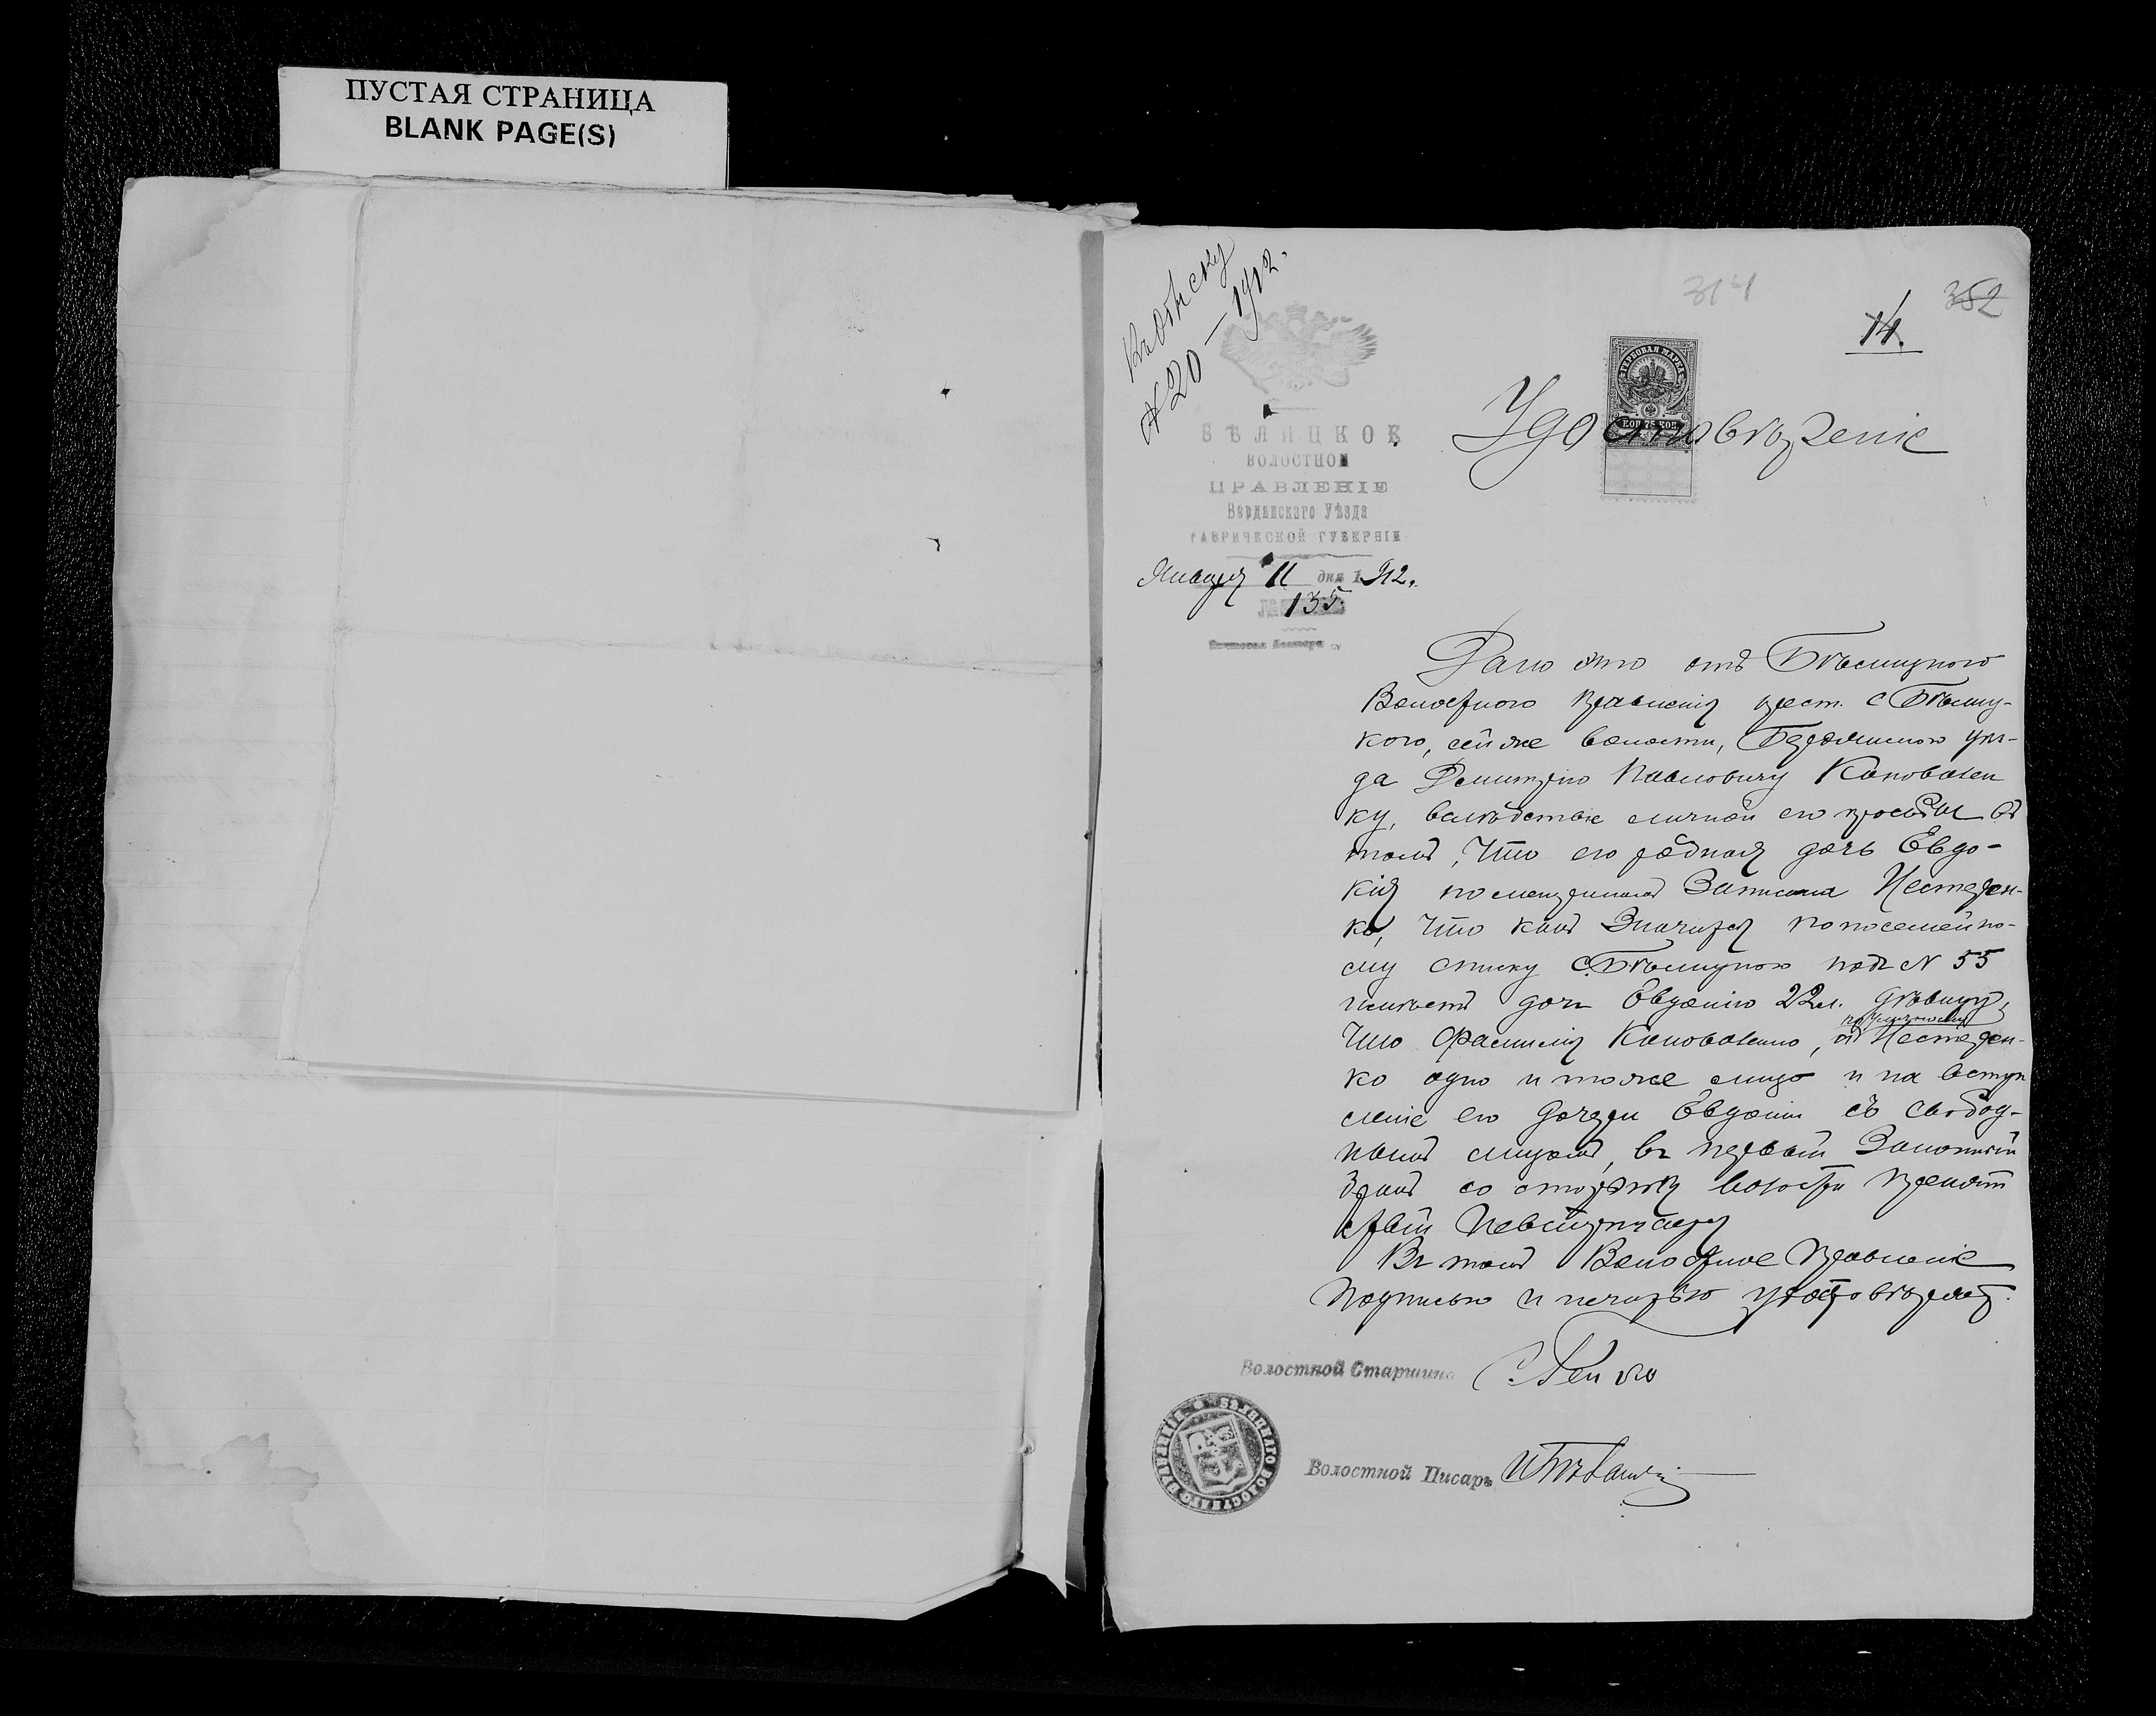 ПУСТАЯ СТРАНИЦА
BLANK PAGE(S)
Къ обыску
№ 20 — 1912.
314
352
14.
БѢЛИЦКОЕ
ВОЛОСТНОЕ
ПРАВЛЕНІЕ
Бердянскаго Уѣзда
ТАВРИЧЕСКОЙ ГУБЕРНІИ
Января 11 дня 1912.
№ 135.
ГЕРБОВАЯ МАРКА
КОП 75 КОП
Удостовѣреніе
Дано это отъ Бѣлицкого
Волостного Правленія крест. с Бѣлиц-
кого, сей же волости, Бердянскаго уѣз-
да Дмитрію Павловичу Коновален
ку, вслѣдствіе личной его просьбы въ
томъ, что его родная дочь Евдо-
кія по метрикамъ Записана Нестерен-
ко, что какъ Значится по посемейно-
му списку с. Бѣлицкого подъ № 55
имѣетъ дочь Евдокію 22 л. дѣвицу,
что фамилія Коноваленко, и
по уличному
Нестерен-
ко одно и тоже лицо и на вступ
леніе его дочери Евдокіи съ свобод-
нымъ лицомъ, въ первый Законный
бракъ со стороны волости препят
ствій невстрѣчается
Въ томъ Волостное Правленіе
подписью и печатью удостовѣряетъ.
Волостной Старшина
Волостной Писарь
БѢЛИЦКАГО ВОЛОСТНАГО ПРАВЛЕНІЯ